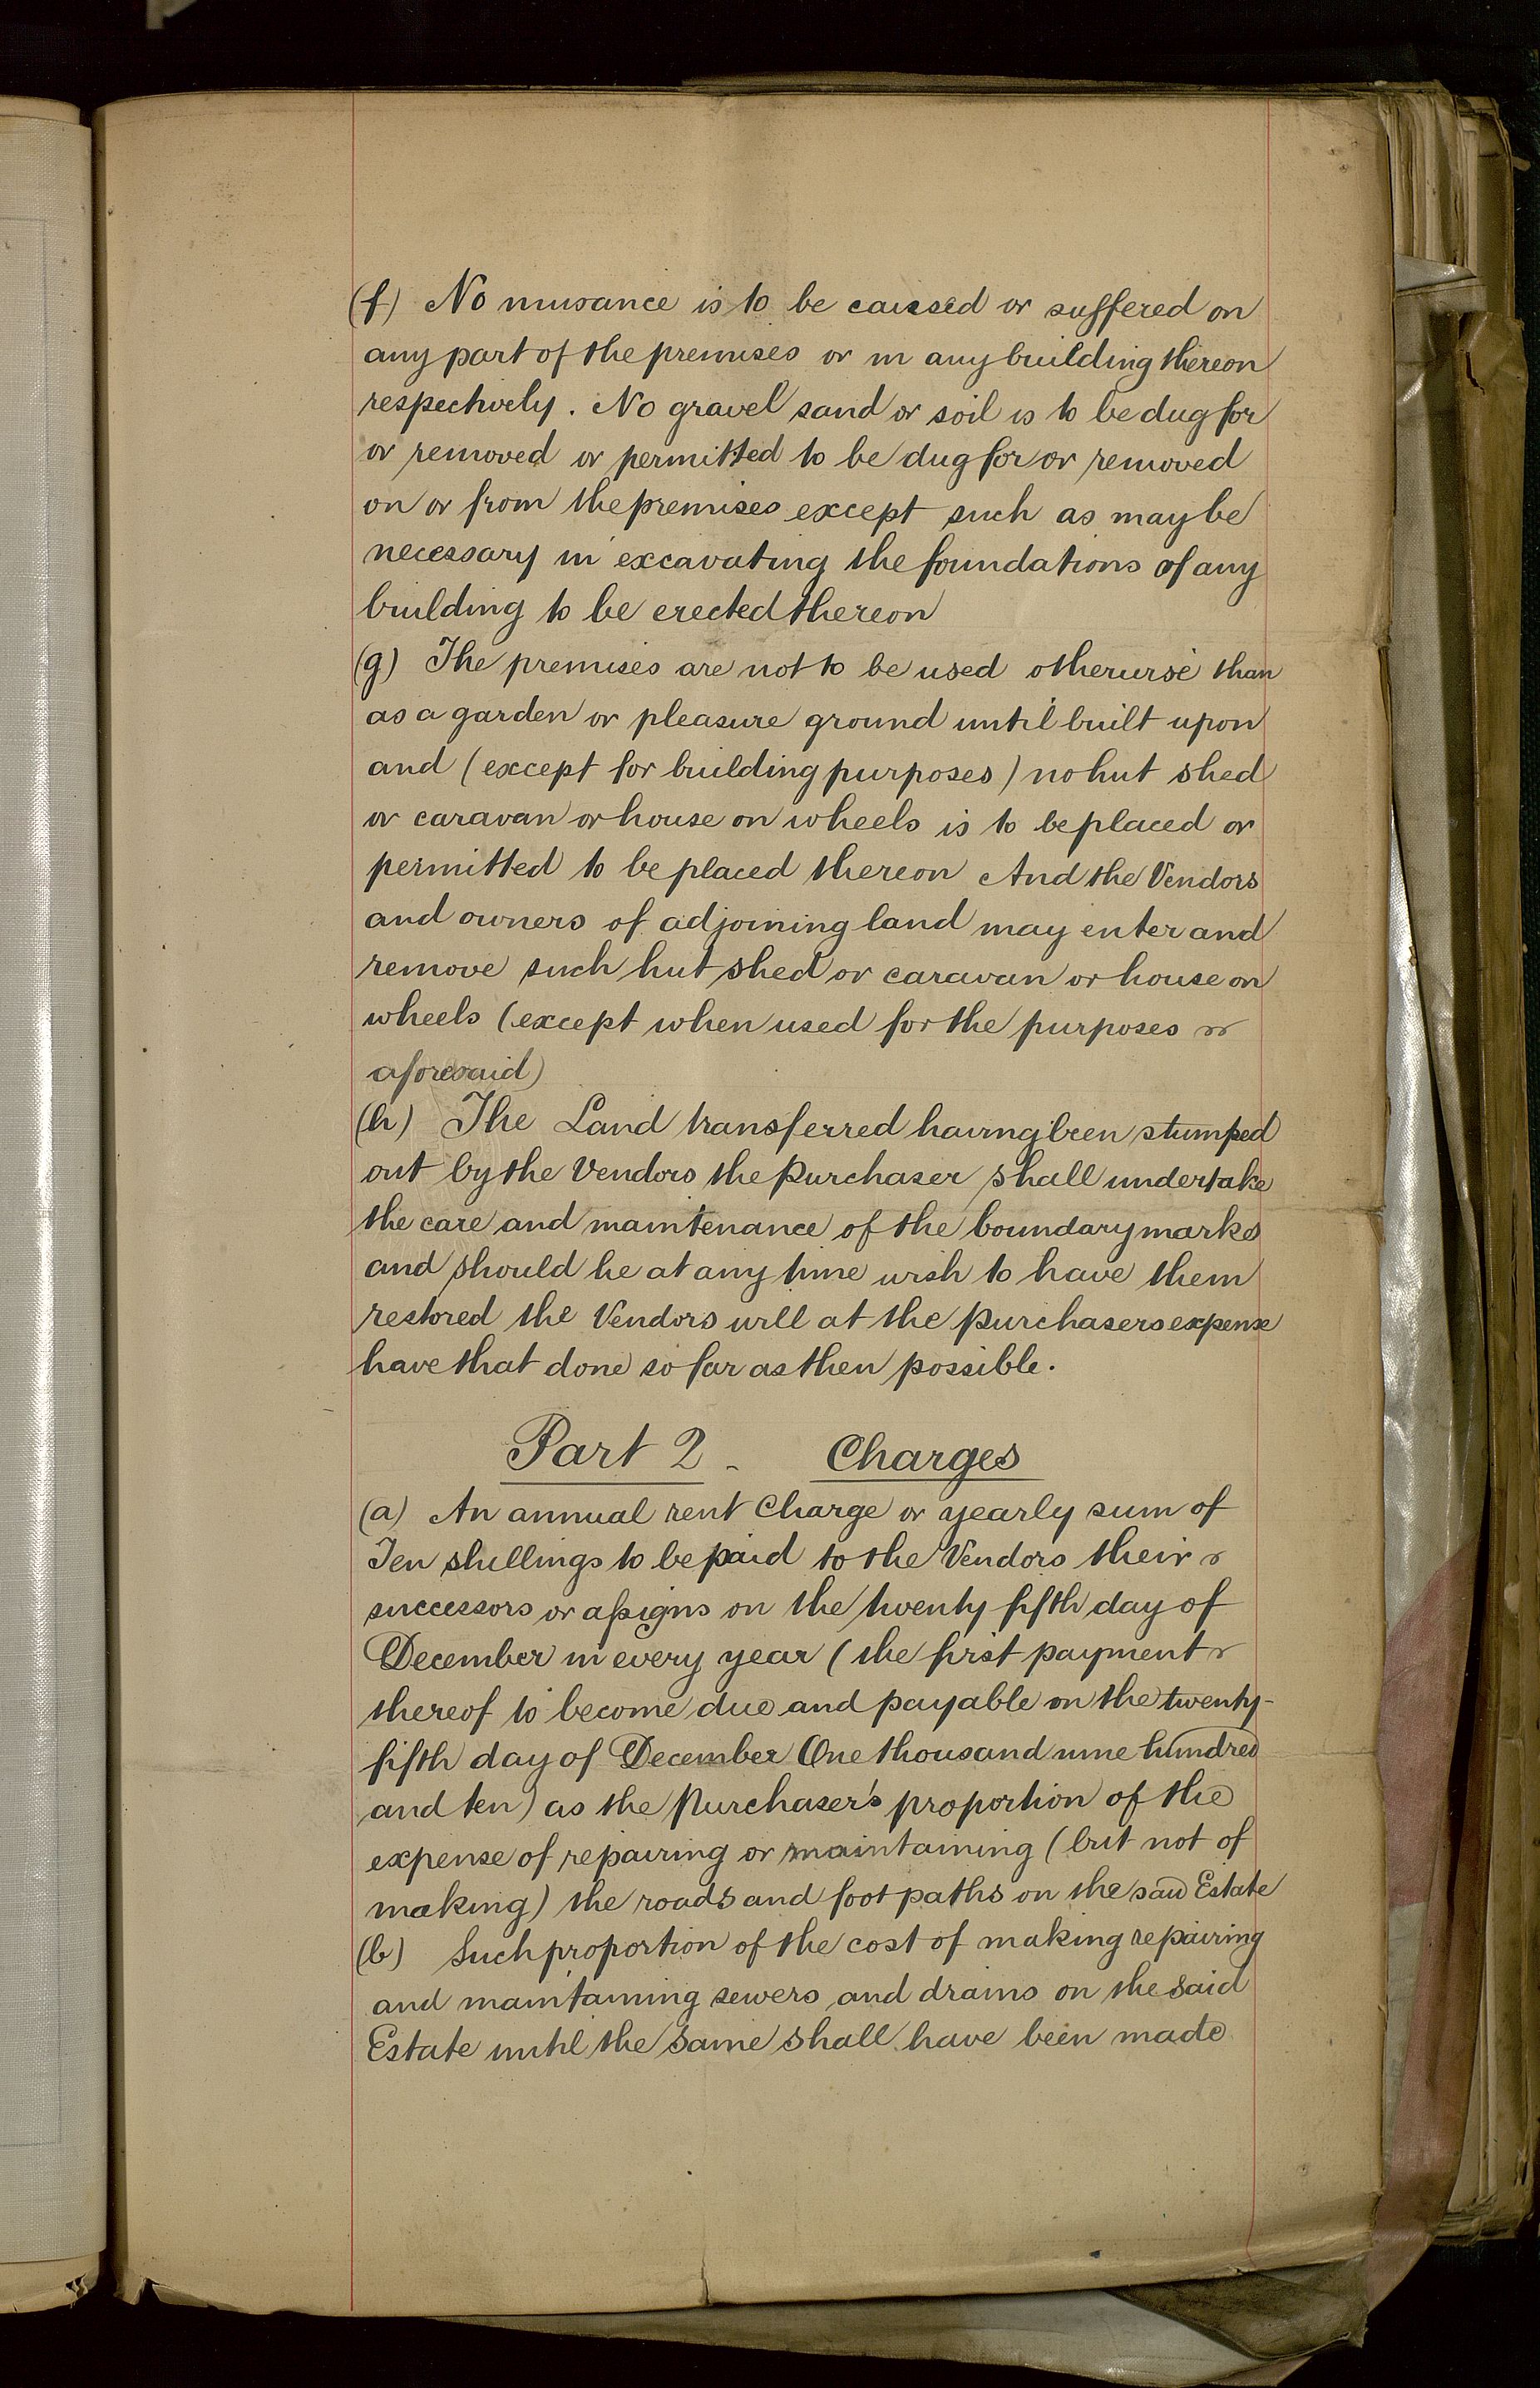 (f) No nuisance is to be caused or suffered on
any part of the premises or in any building thereon
respectively. No gravel sand or soil is to be dug for
or removed or permitted to be dug for or removed
on or from the premises except such as may be
necessary in excavating the foundations of any
building to be erected thereon
(g) The premises are not to be used otherwise than
as a garden or pleasure ground until built upon
and (except for building purposes) no hut shed
or caravan or house on wheels is to be placed or
permitted to be placed thereon And the Vendors
and owners of adjoining land may enter and
remove such hut shed or caravan or house on
wheels (except when used for the purposes
aforesaid)
(h) The Land transferred having been stumped
out by the Vendors the Purchaser shall undertake
the care and maintenance of the boundary marks
and should he at any time wish to have them
restored the Vendors will at the purchasers expense
have that done so far as then possible.
Part 2 - Charges
(a) An annual rent Charge or yearly sum of
Ten shillings to be paid to the Vendors their
successors or assigns on the twenty fifth day of
December in every year (the first payment
thereof to become due and payable on the twenty-
fifth day of December One thousand nine hundred
and ten) as the Purchaser's proportion of the
expense of repairing or maintaining (but not of
making) the roads and foot paths on the said Estate
(b) Such proportion of the cost of making repairing
and maintaining sewers and drains on the said
Estate until the same shall have been made